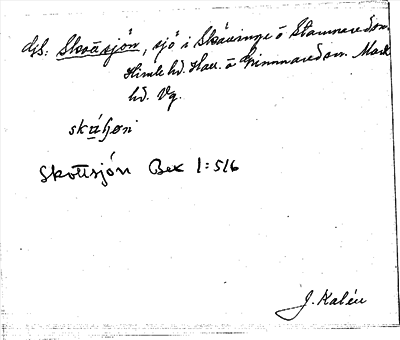 djs. Skottsjön, sjö i Skällinge o Stamnared sn.
Himle hd. Hall. o Grimmared sn. Mark
hd. Vg.
Skottsjön Bex 1:516
J. Kalén